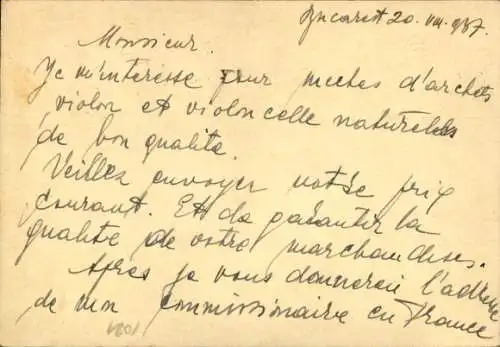 Bucarest 20. VIII. 937.
Monsieur.
Je m'interesse pour meches d'archets
violon et violoncelle naturelles
de bon qualite.
Veillez envoyer votre prix
courant. Et da garantir la
qualite de votre marchandises.
Apres je vous donnerai l'adresse
de mon commissionaire en France